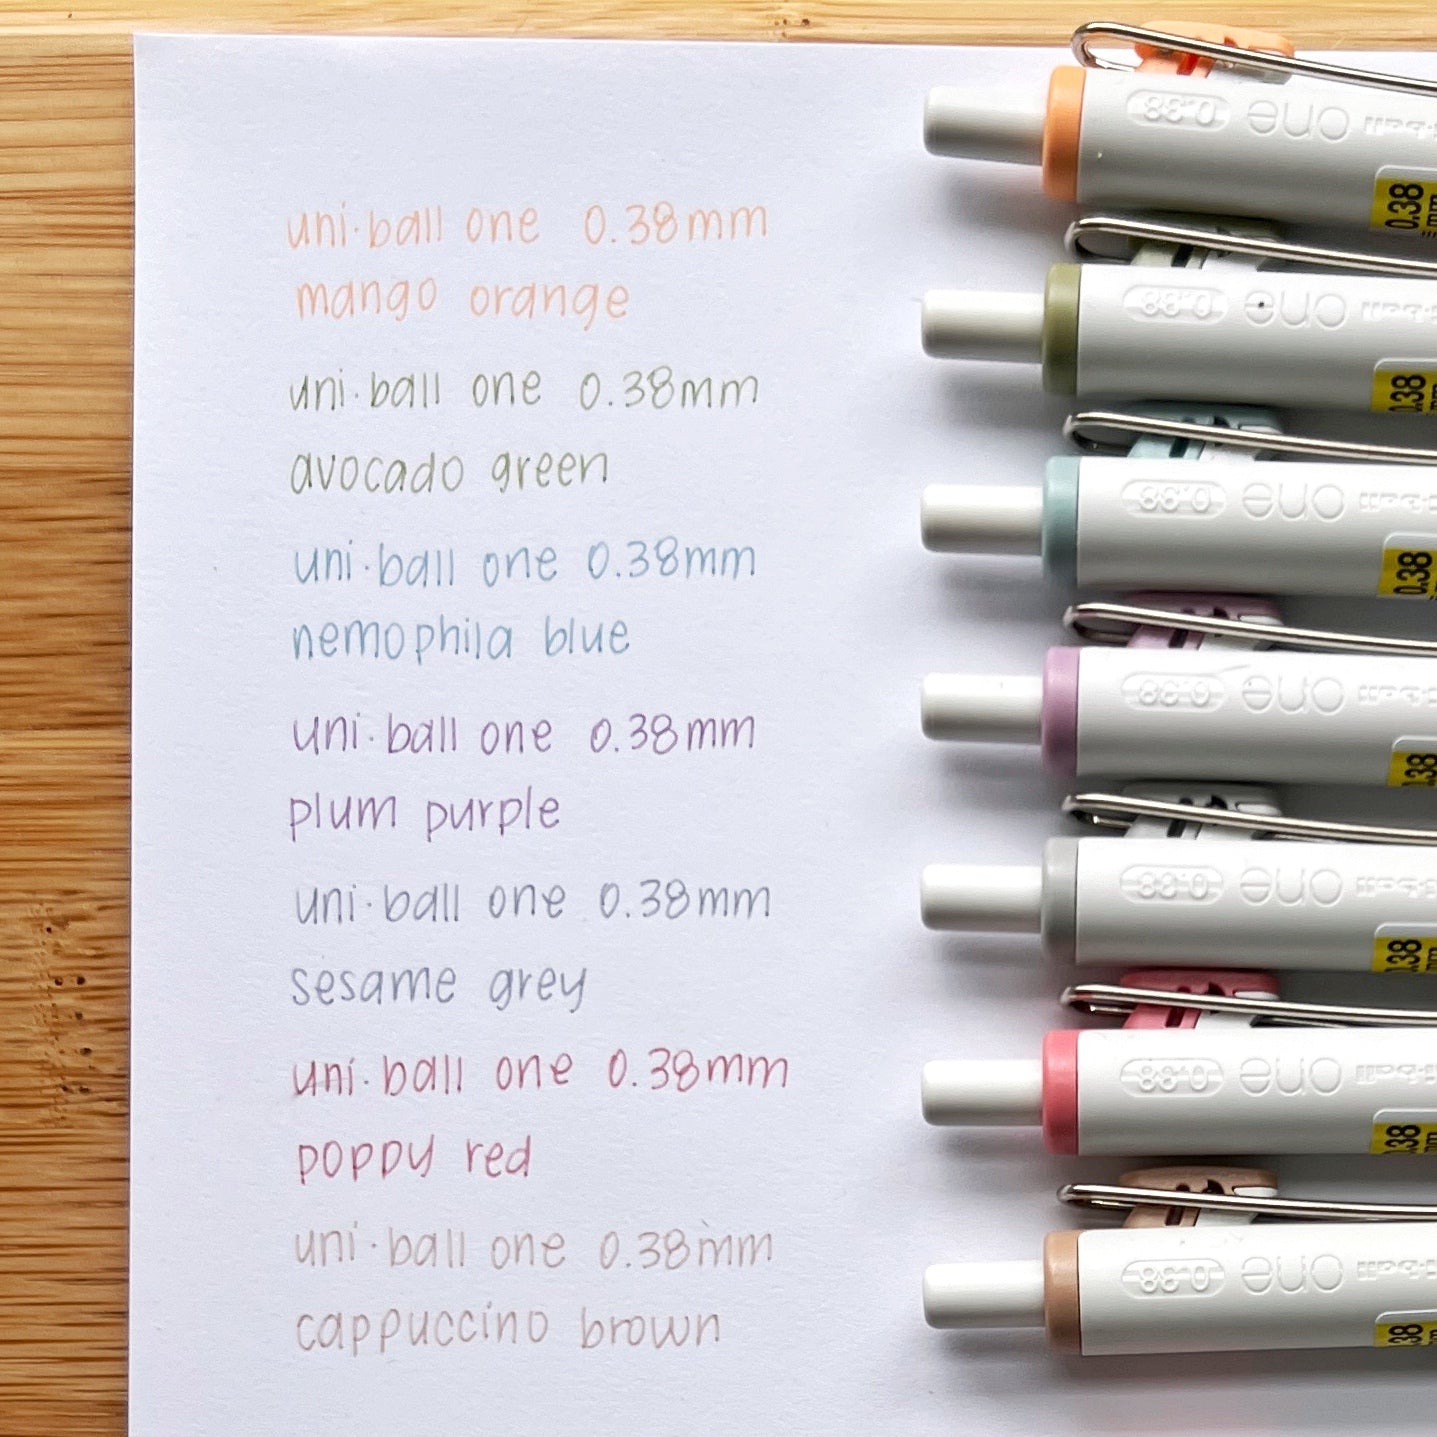 uni·ball one 0.38mm
mango orange
uni·ball one 0.38mm
avocado green
uni·ball one 0.38mm
nemophila blue
uni·ball one 0.38mm
plum purple
uni·ball one 0.38mm
sesame grey
uni·ball one 0.38mm
poppy red
uni·ball one 0.38mm
cappuccino brown
0.38 one
0.38
mm
0.38 one
0.38 one
0.38
0.38 one
0.38 one
0.38 one
0.38 one